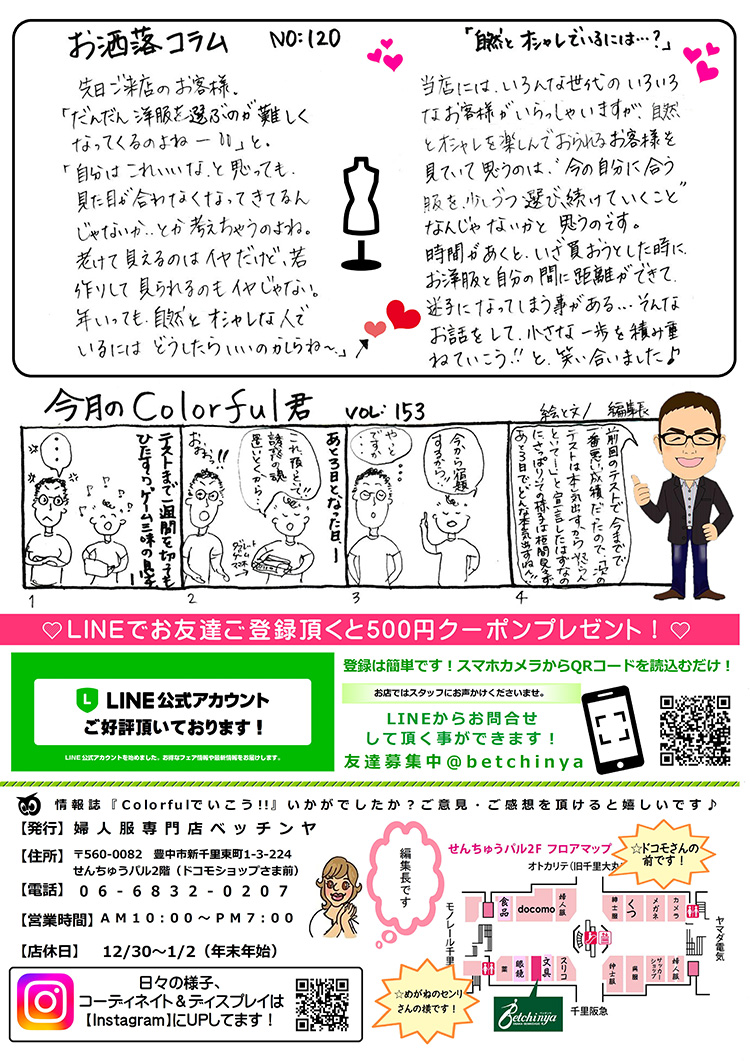 お洒落コラム NO:120
「自然とオシャレでいるには…?」
先日ご来店のお客様。
「だんだん洋服を選ぶのが難しく
なってくるのよねー」と。
「自分はこれいいな、と思っても、
見た目が合わなくなってきてるん
じゃないか..とか考えちゃうのよね。
老けて見えるのはイヤだけど、若
作りして見られるのもイヤじゃない。
年いっても、自然とオシャレな人で
いるにはどうしたらいいのかしらね〜」
当店には、いろんな世代のいろいろ
なお客様がいらっしゃいますが、自然
とオシャレを楽しんでおられるお客様を
見ていて思うのは、“今の自分に合う
服を、少しづつ選び、続けていくこと”
なんじゃないかと思うのです。
時間があくと、いざ買おうとした時に、
お洋服と自分の間に距離ができて、
迷子になってしまう事がある...そんな
お話をして、小さな一歩を積み重
ねていこう!!と、笑い合いました♪
今月のColorful君 VOL:153
絵と文/編集長
テストまで一週間を切るも
ひたすら、ゲーム三昧の息子
...
1
これ、夜といって!!
誘惑の魂
置いとくから...
おぉっ!!
2
あと3日となった日、
今から宿題
するから!!
やっと
ですか
...
3
前回のテストで、今までで
一番悪い成績だったので、「次の
テストは本気出す。
あと3日で、どんな本気出すねん!!
4
♡LINEでお友達ご登録頂くと500円クーポンプレゼント!♡
LINE公式アカウント
ご好評頂いております!
LINE公式アカウントを始めました。お得なフェア情報や最新情報をお届けします。
登録は簡単です!スマホカメラからQRコードを読込むだけ!
お店ではスタッフにお声かけくださいませ。
LINEからお問合せ
して頂く事ができます!
友達募集中@betchinya
情報誌『Colorfulでいこう!!』いかがでしたか?ご意見・ご感想を頂けると嬉しいです♪
【発行】婦人服専門店ベッチンヤ
【住所】〒560-0082 豊中市新千里東町1-3-224
せんちゅうパル2階(ドコモショップさま前)
【電話】06-6832-0207
【営業時間】AM10:00〜PM7:00
【店休日】 12/30〜1/2(年末年始)
日々の様子、
コーディネイト&ディスプレイは
【Instagram】にUPしてます!
編集長です
せんちゅうパル2F フロアマップ
オトカリテ(旧千里大丸
☆ドコモさんの
前です!
食品
docomo
婦人服
紳士服
くつ
メガネ
カメラ
モノレール千里
ヤマダ電気
薬
眼鏡
文具
スリコ
紳士服
呉服
サッカーショップ
婦人服
☆めがねのセンリ
さんの横です!
Betchinya
千里阪急